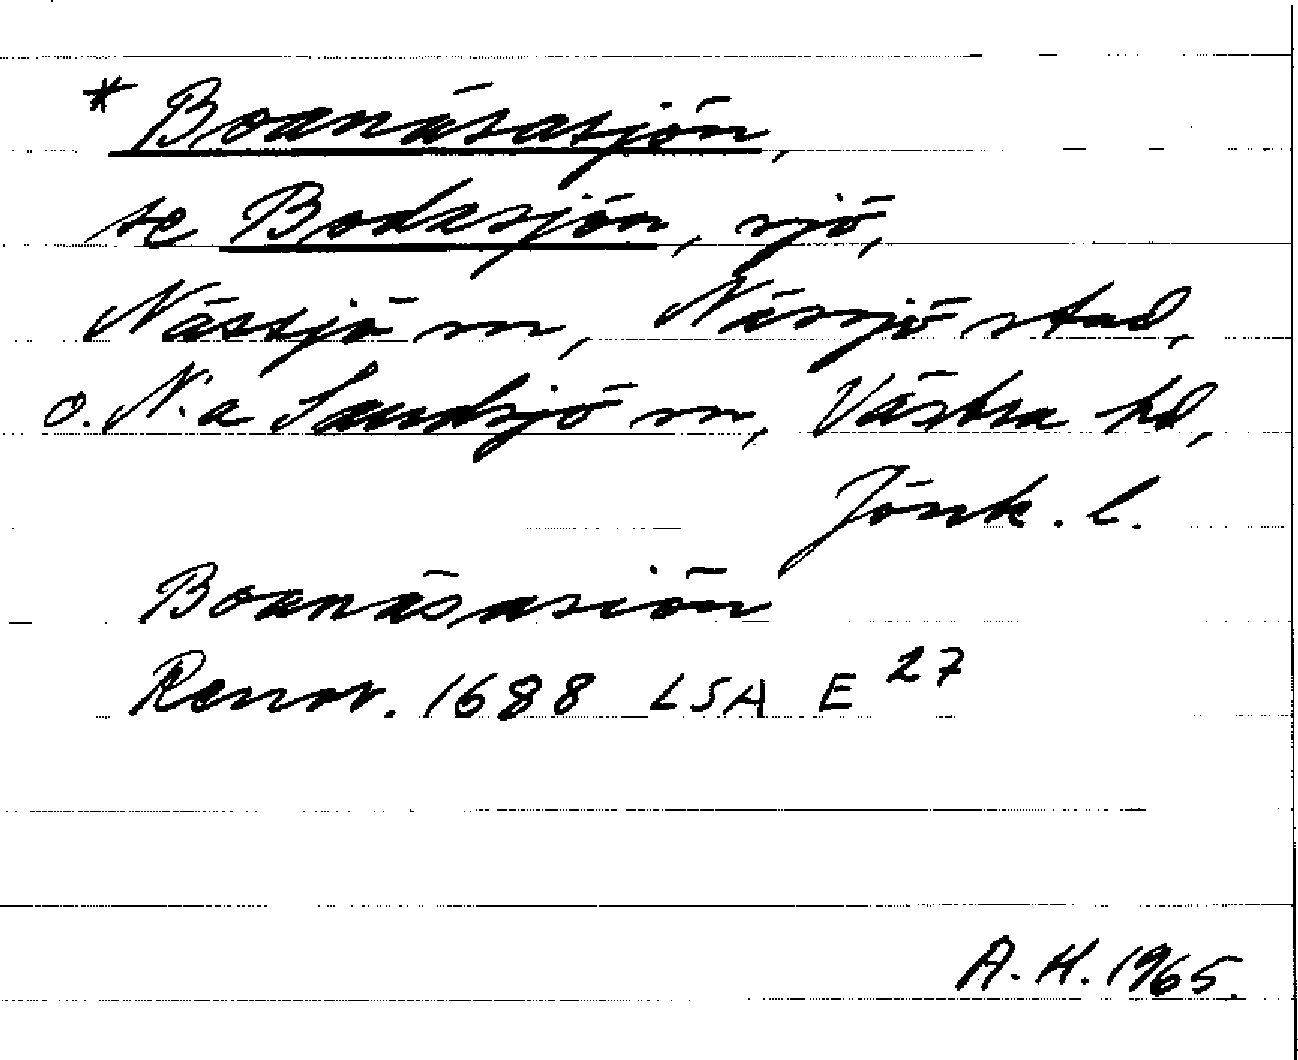 * Boanäsasjön,
se Bodasjön, sjö,
Nässjö sn, Nässjö stad,
o. N:a Sandsjö sn, Västra hd,
Jönk. l.
Boanäsasiön
Renov. 1688 LSA E 27
A. H. 1965.